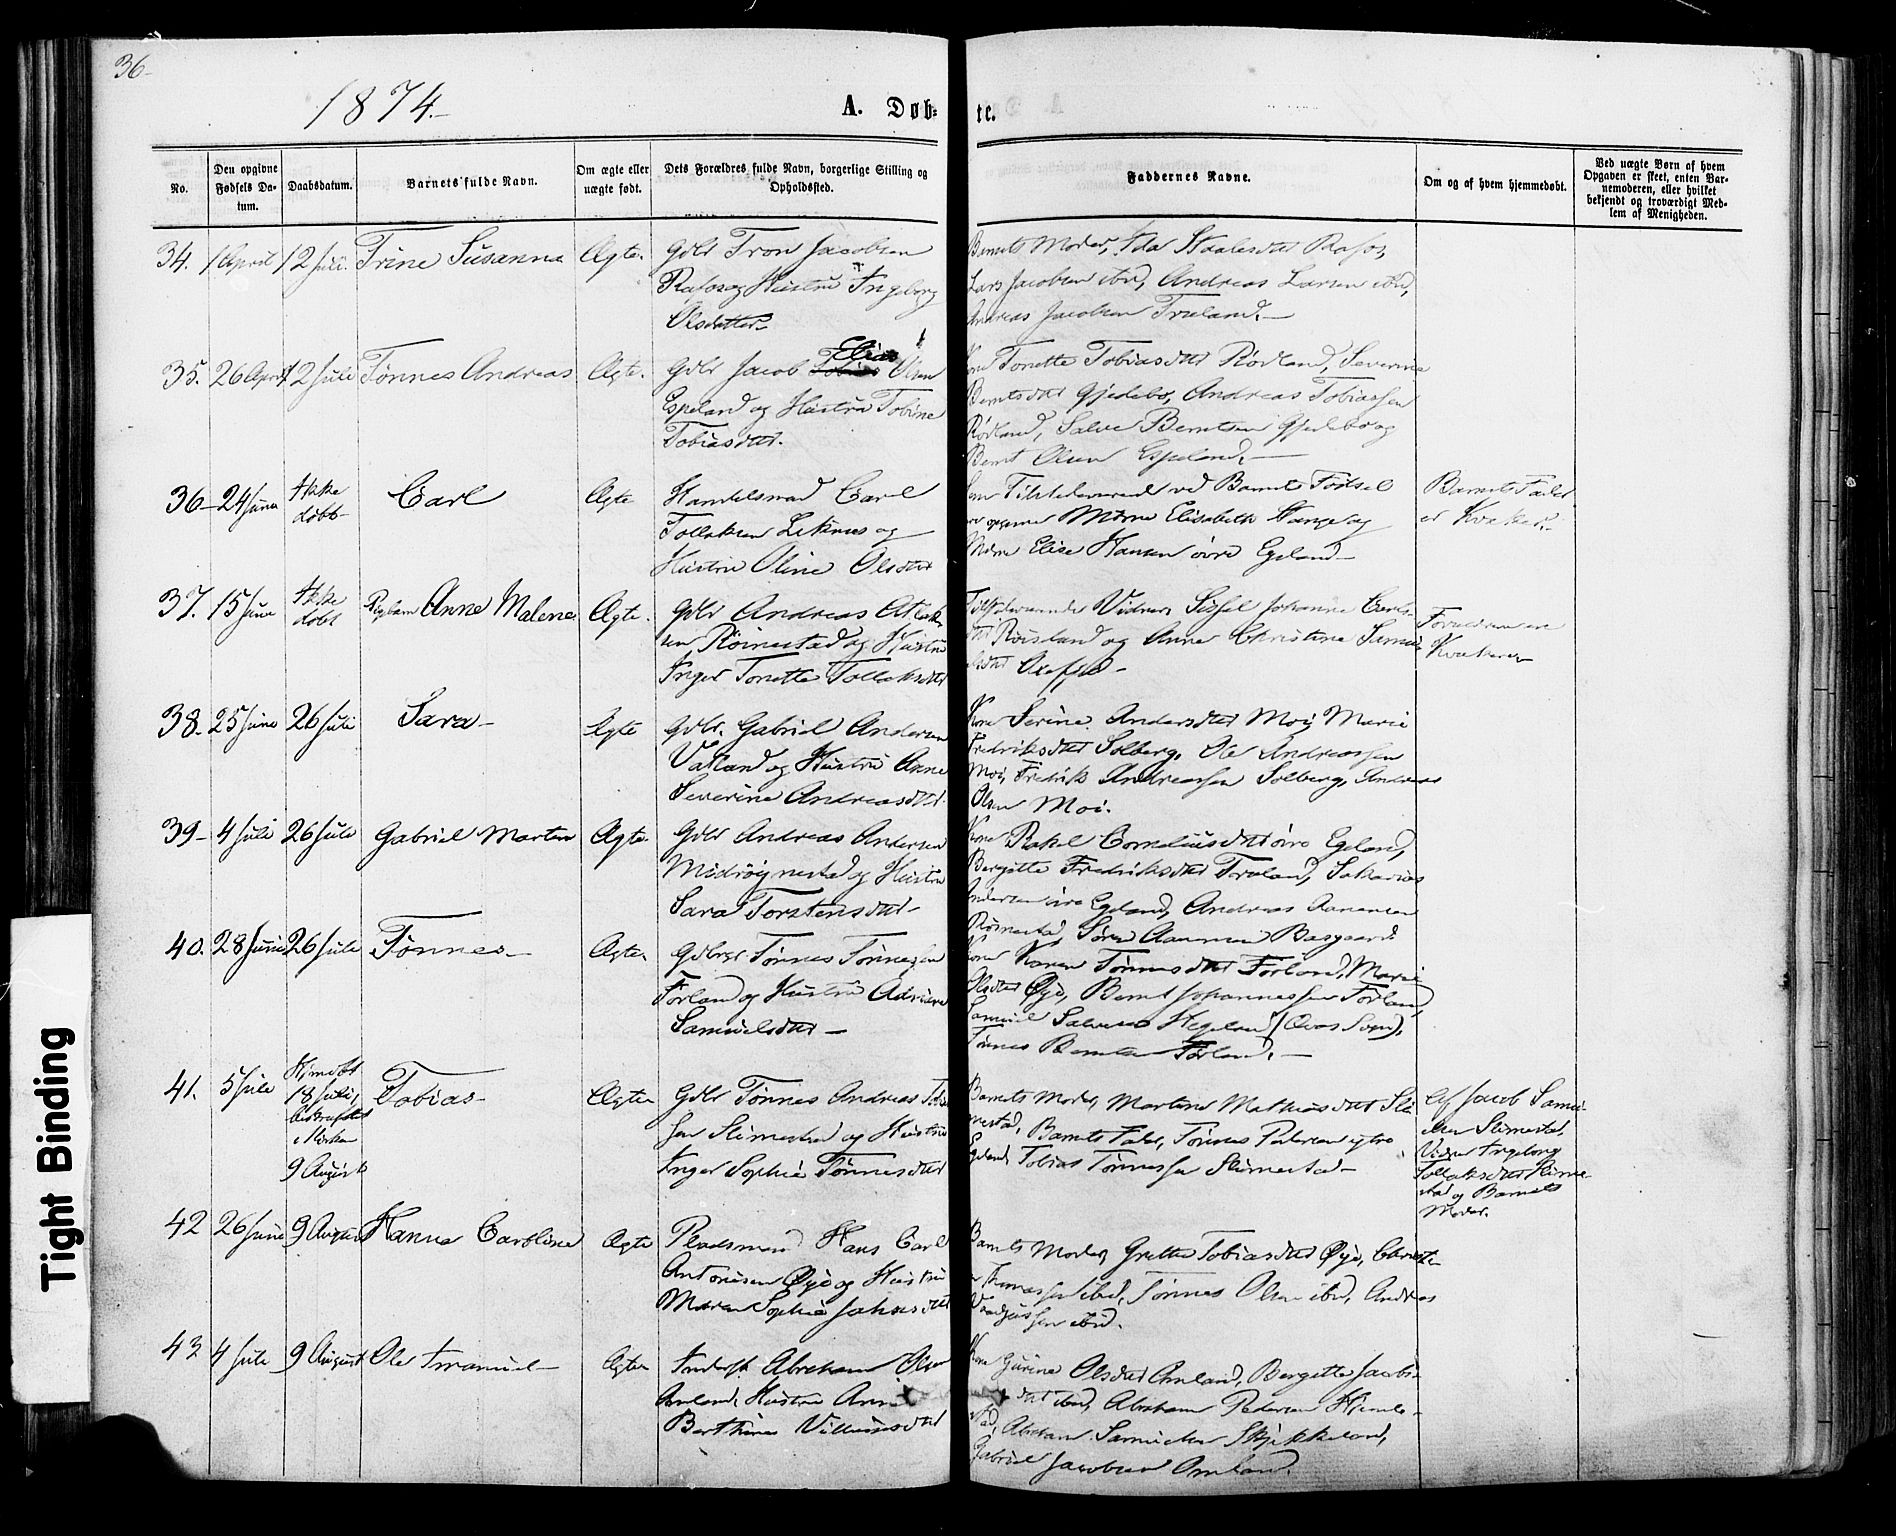 36-
1874.-
A. Døb-
te.
No.
Den opgivne Fødsels Da-tum.
Daabsdatum.
Barnets fulde Navn.
Om ægte eller uægte født.
Dets Forældres fulde Navn, borgerlige Stilling og Opholdssted.
Faddernes Navne.
Om og af hvem hjemmedøbt.
Ved uægte Børn af hvem Opgaven er skeet, enten Bar-nemoderen, eller hvilket bekjendt og troværdigt Med-lem af Menigheden.
34. 1 April 12 Juli. Trine Susanna Ægte. Gdbr Tron Jacobsen
Rafos og Hustru Ingeborg
Olsdatter
Barnets Moder, Ida Staalesdtr Rafos,
Lars Jacobsen ibd, Andreas Larsen ibd,
Andreas Jacobsen Træland.-
35. 26 April 12 Juli Tønnes Andreas Ægte. Gdbr Jacob Elias Olsen
Espeland og Hustru Tobine
Tobiasdtr.
Kone Tonette Tobiasdtr Rørland, Severine
Berntsdtr Gjedebo, Andreas Tobiassen
Rørland, Salve Berntsen Gjedebo og
Bernt Olsen Espeland.-
36- 24 Juni Ikke døbt Carl Ægte Handelsmand Carl
Tollaksen Leknes og
Hustru Oline Olsdtr
Som Tilstedeværende ved Barnets Fødsel
er opgivne Mdme Elisabeth Stange og
Mdme Elise Hansen øvre Egeland-
Barnets Fader
er Kvæker.
37. 15 Juni Ikke døbt Pigebarn Anna Malene Ægte. Gdbr Andreas Atlak-
sen Røinestad og Hustru
Inger Tonette Tollaksdtr
Tilstedeværende Vidner Sissel Johanne Carls-
dtr Røisland og Anne Christine Samu-
elsdtr
Forældrene ere
Kvækere
38- 25 Juni 26 Juli Sara- Ægte Gdbr. Gabriel Andersen
Vatland og Hustru Anne
Severine Andreasdtr.
Kone Serine Andersdtr Moi, Marie
Fredriksdtr Solberg, Ole Andreassen
Moi, Fredrik Andreassen Solberg, Andreas
Olsen Moi.
39- 4 Juli 26 Juli Gabriel Martin Ægte. Gdbr Andreas Andersen
Midrøynestad og Hustru
Sara Torstensdtr-
Kone Rakel Corneliusdtr øvre Egeland,
Bergitte Fredriksdtr Træland, Sakarias
Andersen øvre Egeland, Andreas Aanensen
Røinestad, Søren Aanensen Basgaard.
40. 28 Juni 26 Juli Tønnes- Ægte. Gdbr Tønnes Tønnessen
Førland og Hustru Adriane
Samuelsdtr-
Kone Karen Tønnesdtr Førland, Marie
Olsdtr Øye, Bernt Johannessen Førland,
Samuel Salvesen Hegeland (Qvas Sogn),
Tønnes Berntsen Førland.-
41. 5 Juli Hjemdøbt
18 Juli,
bekræftet
i Kirken
9 August
Tobias- Ægte Gdbr Tønnes Andreas Tobias-
sen Slimestad og Hustru
Inger Sophie Tønnesdtr
Barnets Moder, Martine Mathiasdtr Sli-
mestad, Barnets Fader, Tønnes Pedersen ytre
Egeland, Tobias Tønnessen Slimestad-
Af Jacob Samu-
elsen Slimestad,
Vidner Ingeborg
Tollaksdtr Slime-
stad og Barnets
Moder.
42 26 Juni 9 August Hanna Caroline Ægte Pladsmand Hans Carl
Antonisen Øye og Hustru
Maren Sophie Jahnsdtr
Barnets Moder, Grethe Tobiasdtr Øye, Christi-
an Thomassen ibd, Tønnes Olsen ibd, Andreas
ibd.
43 4 Juli 9 August Ole Imanuel- Ægte Inderst Abraham Olsen
Amland, Hustru Anne
Berthine Villumsdtr
Kone Gurine Olsdtr Amland, Bergitte Jacobs-
dtr ibd, Abraham Pedersen Himle-
stad, Abraham Samuelsen Skjekkeland,
Gabriel Jacobsen Amland.
Tight Binding